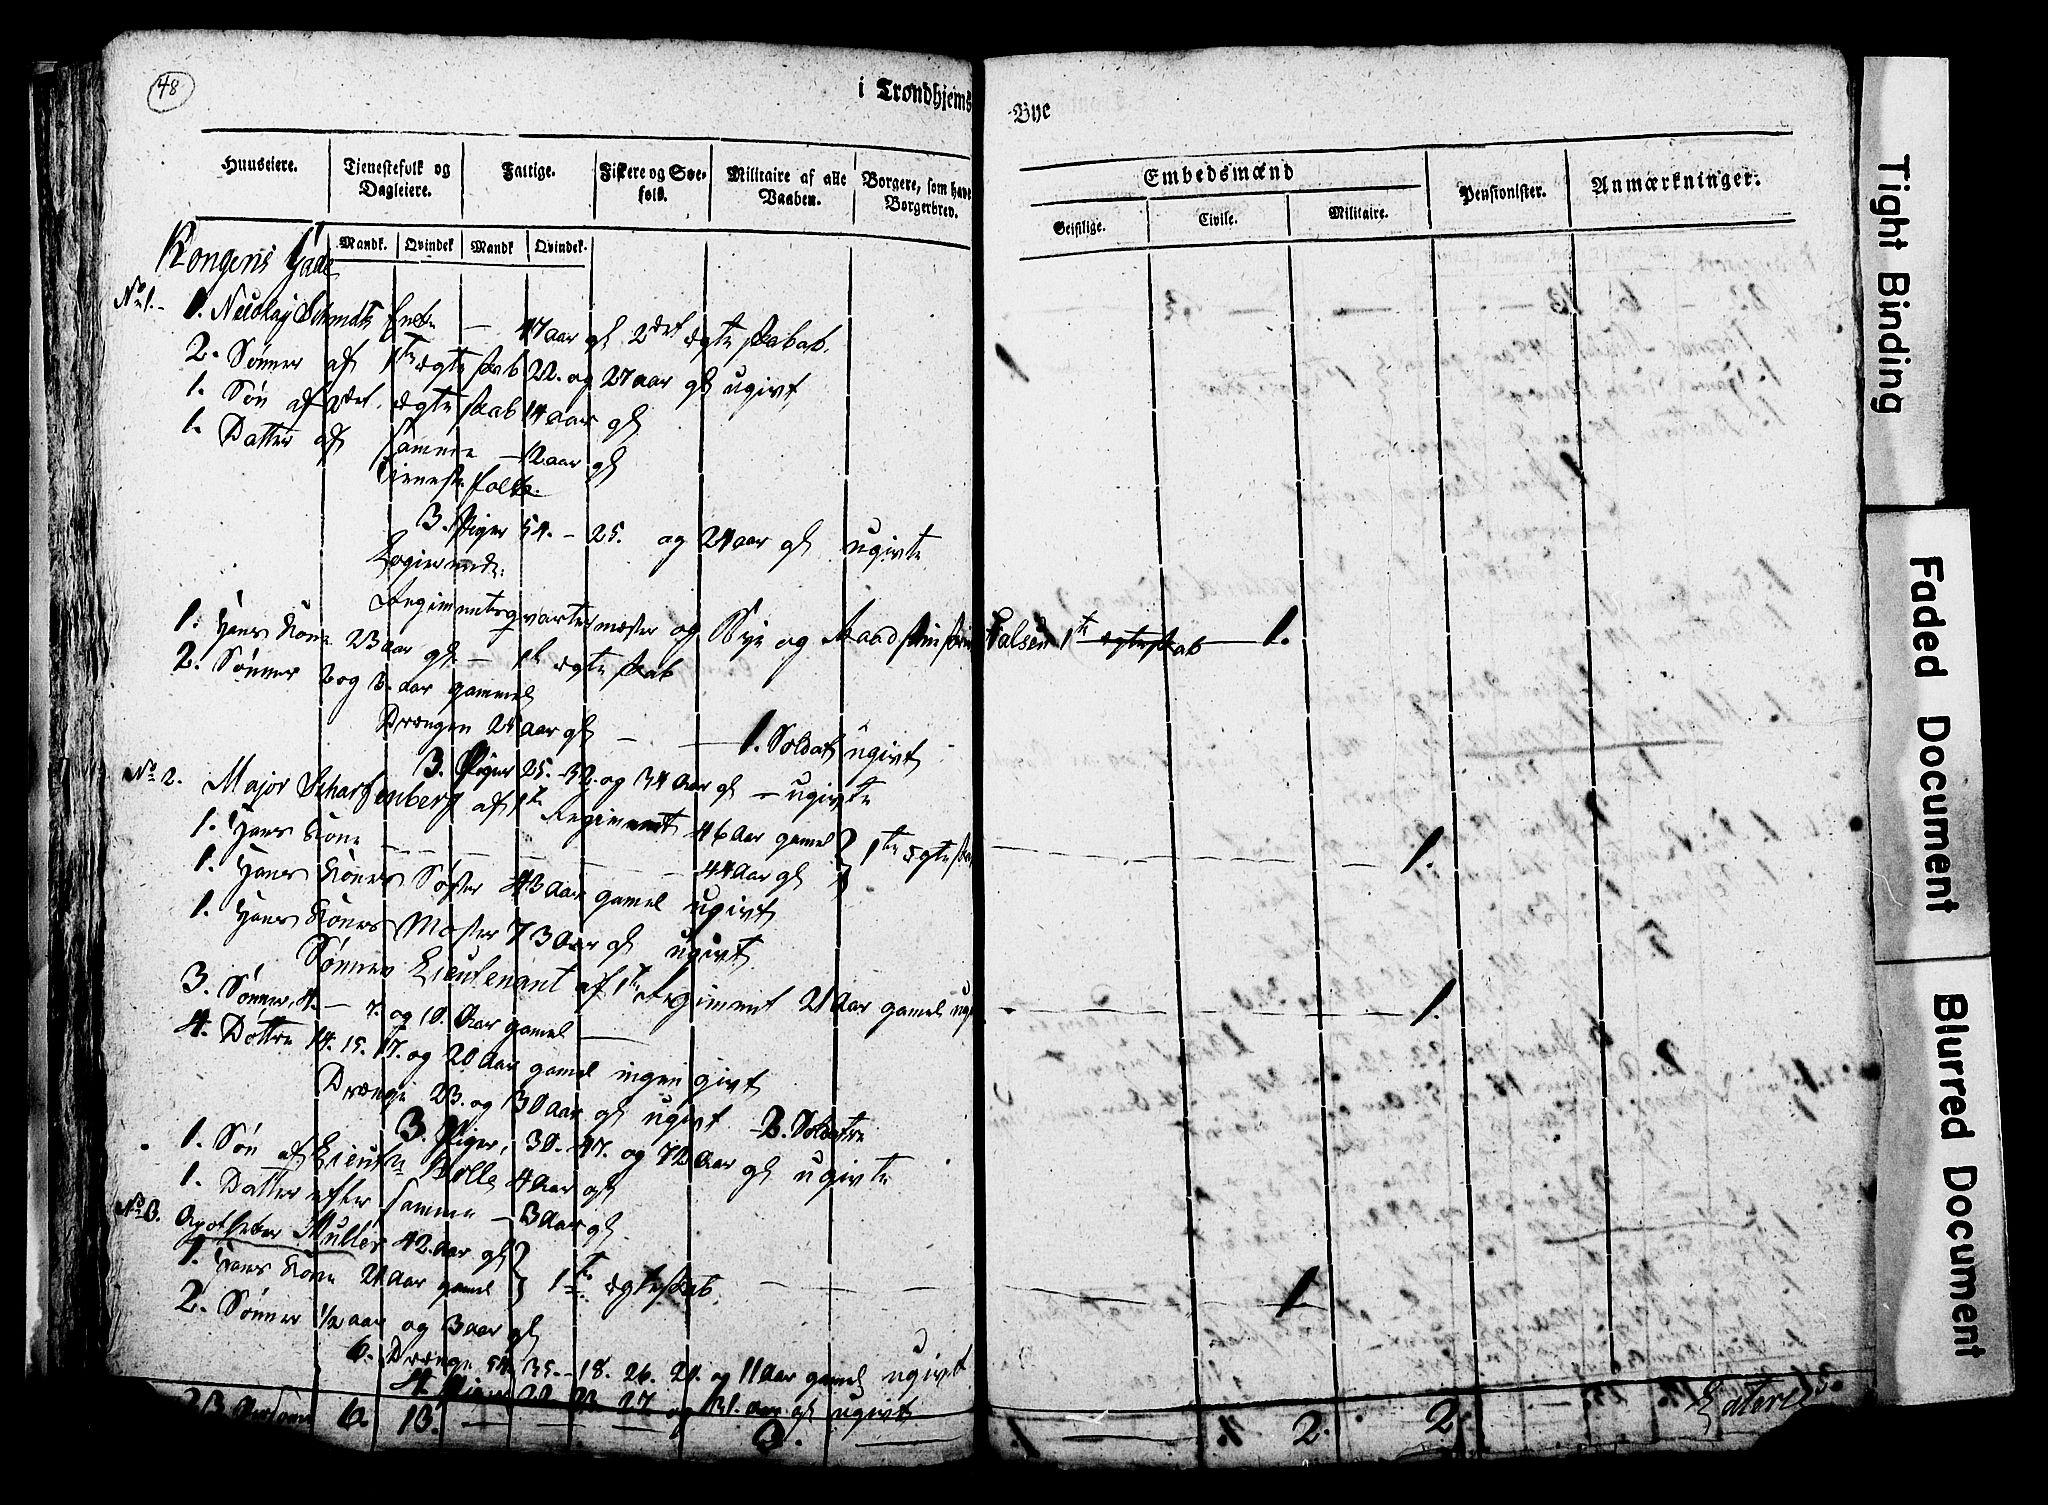 48
i Trondhjems Bye
Huuseiere.
Tjenestefolk og Dagleiere.
Fattige.
Fiskere og Søe-folk.
Militaire af alle Vaaben.
Borgere, som have Borgerbrev.
Embedsmænd
Geistlige.
Civile.
Militaire.
Pensionister.
Anmærkninger.
Mandk. Qvindek Mandk Qvindek.
Kongens Gade
No 1. 1. Nicolay Schmidts Enke — 47 aar gl 2det ægteskab.
2. Sönner af 1te ægteskab 22. og 27 aar gl ugivt
1. Sön af 2det ægteskab 14 aar gl
1. Datter af samme — 12 aar gl
Tieneste folk.
3. Piger 54. – 25. og 24 aar gl ugivte
Logierende:
Regimentsqvartermester og Bye og Raadstueskriver Falsen 1te ægteskab — 1.
1. Hans Kone 23 aar gl. — 1te ægteskab
2. Sönner 2 og 3. aar gammel
Drengen 24 aar gl — 1. Soldat ugivt
3. Piger 25. – 32. og 34 aar gl — ugivte
No 2. Major Scharffenberg af 1te Regiment 46 aar gamel 1te ægteskab 1.
1. Hans Kone — 44 aar gl
1. Hans Kones Söster 43 aar gamel ugivt
1. Hans Kones Moster 73 aar gl ugivt
Sönnen Lieutenant af 1te Regiment 21 aar gamel ugivt 1.
3. Sönner, 4. — 7. og 10. aar gamel
4. Döttre 14. 15. 17. og 20 aar gamel ingen givt
Drenge 23. og 30 aar gl ugivt 2. Soldatere
3. Piger, 30. – 47. og 72 aar gl ugivte
1. Sön af Lieutn Bolle 4 aar gl
1. Datter efter samme — 3 aar gl.
No 3. Apotheker Muller 42. aar gl
1. Hans Kone 24 aar gamel 1te ægteskab. 1
2. Sönner 1/2 aar og 3 aar gl
6. Drenge 54. 35. – 18. 26. 21. og 11 aar gamel ugivt
4. Piger 20. 22. 27 og 31. aar gl ugivt
23 6. 13. — — 3. — 1. 2. 2
Tight Binding
Faded Document
Blurred Document